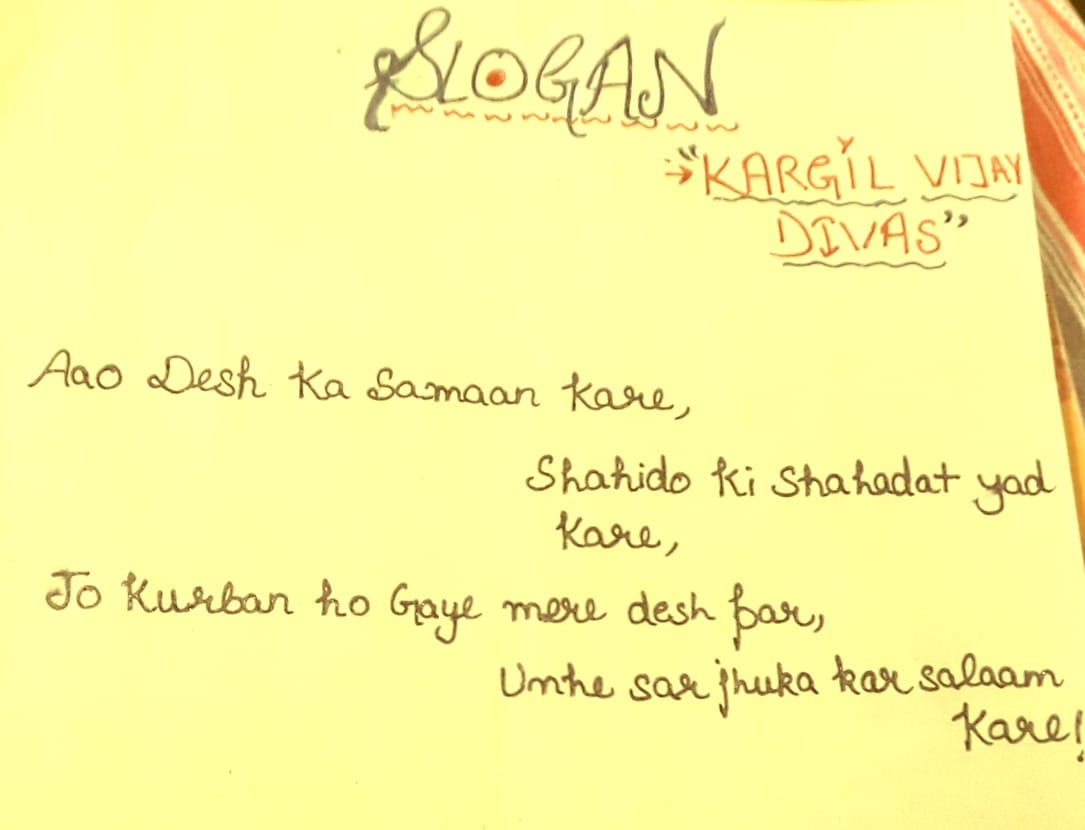 SLOGAN
→ "KARGIL VIJAY
DIVAS"
Aao Desh Ka Samaan Kare,
Shahido Ki Shahadat yad
Kare,
Jo Kurban ho Gaye mere desh par,
Unhe sar jhuka kar salaam
Kare!